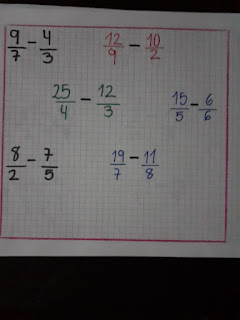 9/7 - 4/3  12/9 - 10/2
25/4 - 12/3  15/5 - 6/6
8/2 - 7/5  19/7 - 11/8